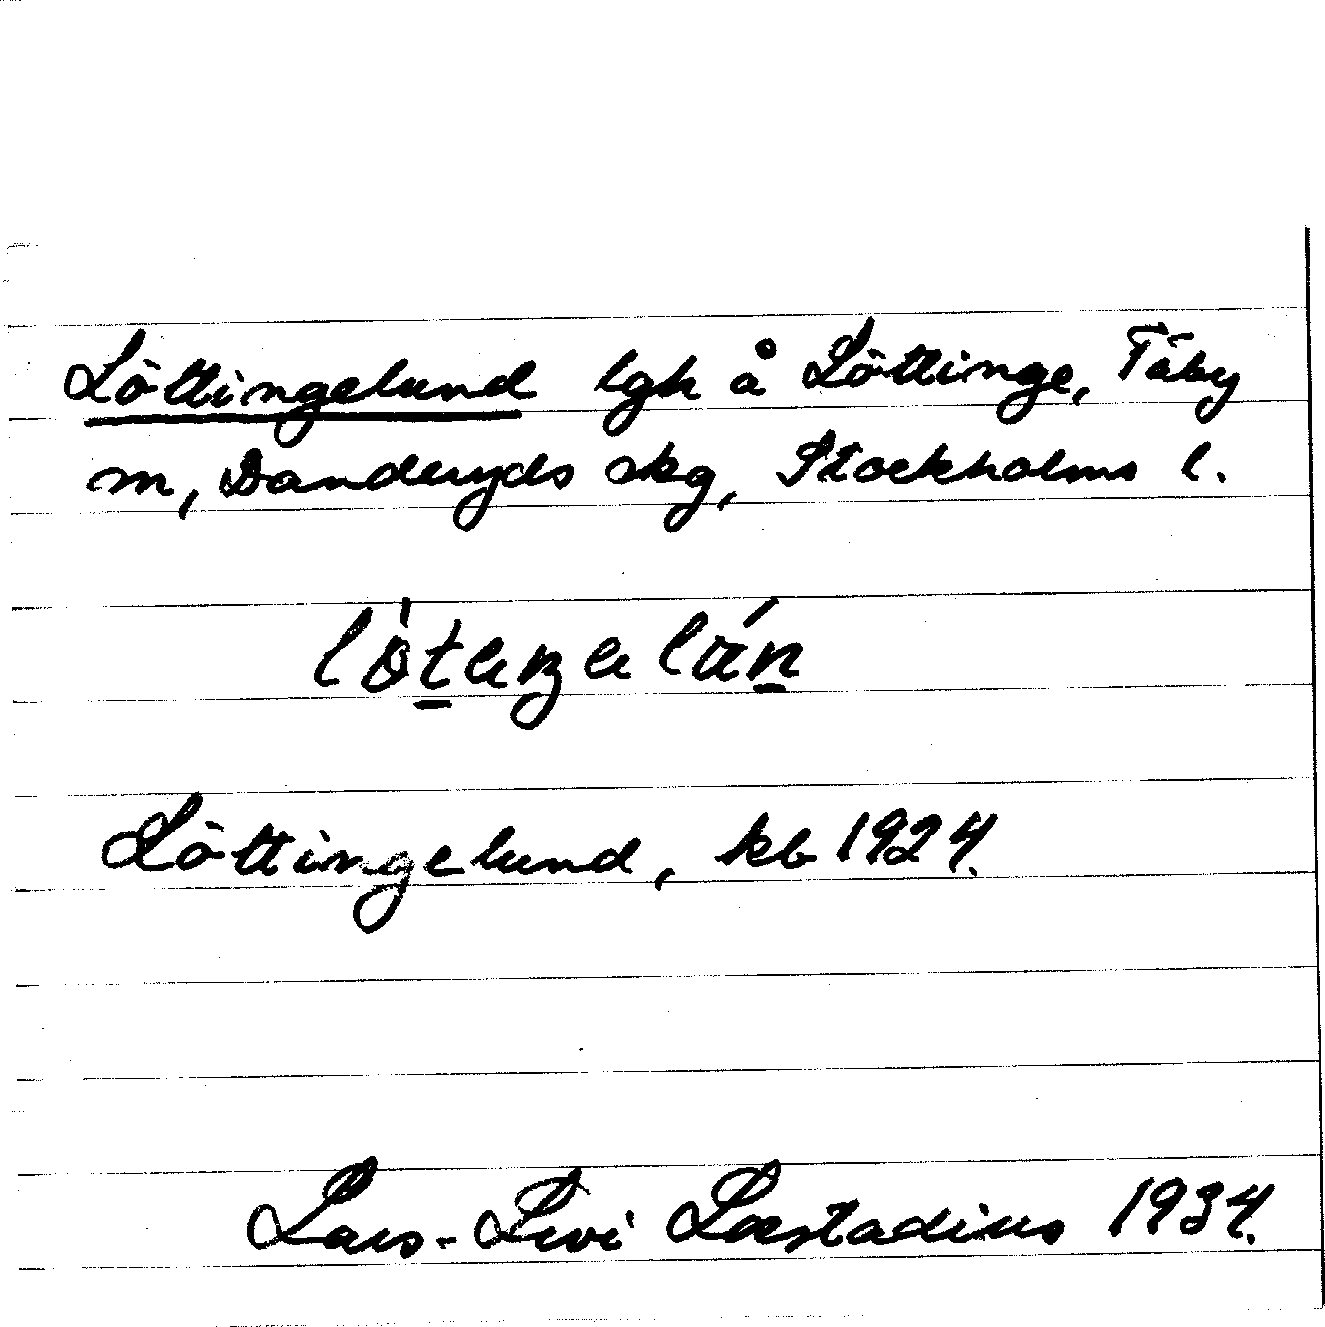 Löttingelund lgh å Löttinge, Täby
m, Danderyds skg, Stockholms l.
Löttingelund, kb 1924.
Lars-Levi Læstadius 1934.